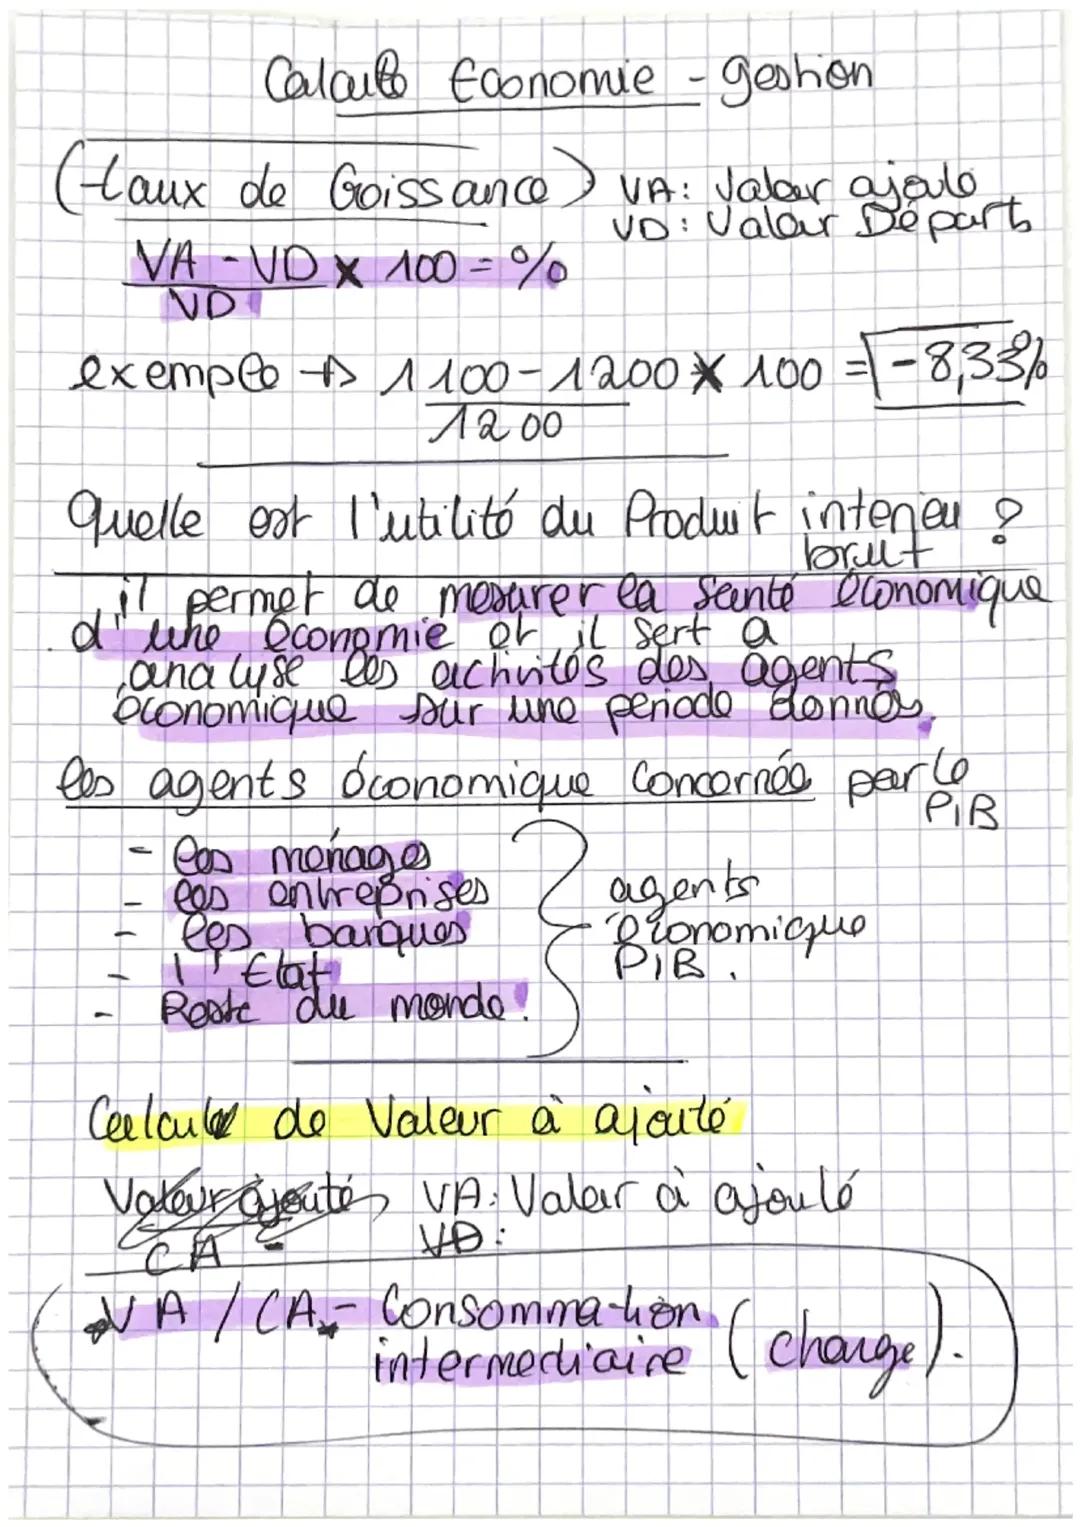 Calculs Economie - gestion
(taux de Croissance) VA: Valeur ajouté
VD: Valeur Départ
VA - VD x 100 = %
VD
exemple → 1100-1200 x 100 = -8,33%
1200
Quelle est l'utilité du Produit interieu ?
brut
il permet de mesurer la santé économique
d'une économie et il sert a
analyse les activités des agents
économique sur une période donnés.
les agents économique Concernée par le
PIB
- les ménages
- les entreprises
- les banques
- l'Etat
- Reste du monde.
agents
économique
PIB.
Calcule de Valeur à ajouté
Valeur ajouté VA: Valeur à ajouté
CA - VD:
VA / CA - Consommation
intermediaire (charge).